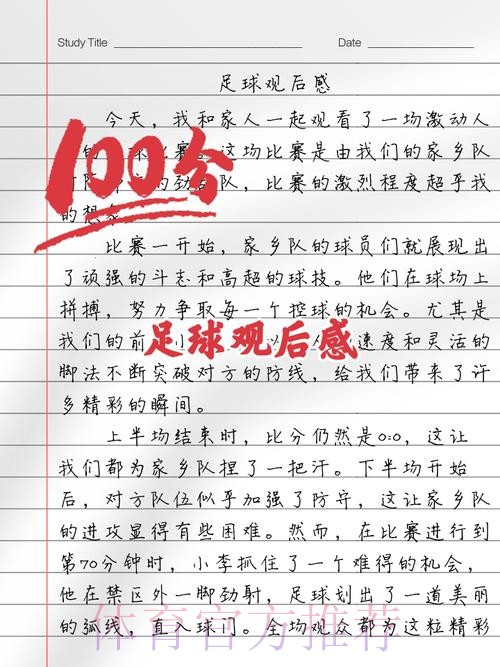 Study Title
Date
足球观后感
今天，我和家人一起观看了一场激动人
100分
球比赛。这场比赛是由我们的家乡队
队，比赛的激烈程度超乎我
的想象
比赛一开始，家乡队的球员们就展现出
了顽强的斗志和高超的球技。他们在球场上
拼搏，努力争取每一个控球的机会。尤其是
我们的前 速度和灵活的
足球观后感
脚法不断突破对方的防线，给我们带来了许
多精彩的瞬间。
上半场结束时，比分仍然是0:0，这让
我们都为家乡队捏了一把汗。下半场开始
后，对方队伍似乎加强了防守，这让家乡队
的进攻显得有些困难。然而，在比赛进行到
第70分钟时，小李抓住了一个难得的机会，
他在禁区外一脚劲射，足球划出了一道美丽
的弧线，直入球门。全场观众都为这粒精彩
体育官方推荐